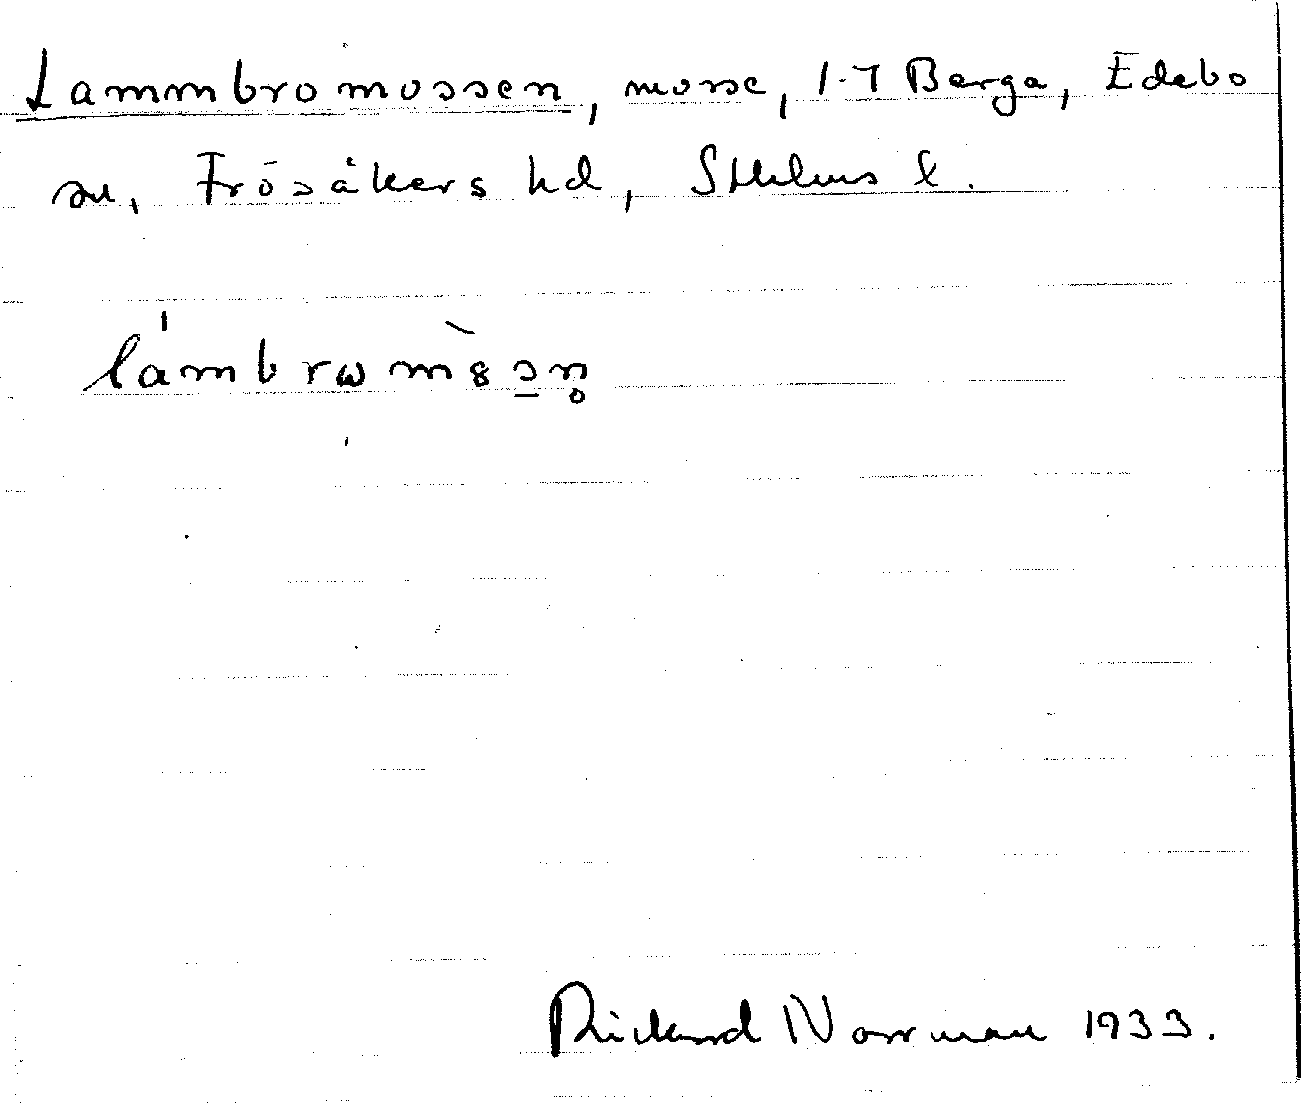 Lammbromossen, mosse, 1-7 Berga, Edebo
sn, Frösåkers hd, Sthlms l.
lámbrωmìsɔn̥
Rickard Norrman 1933.